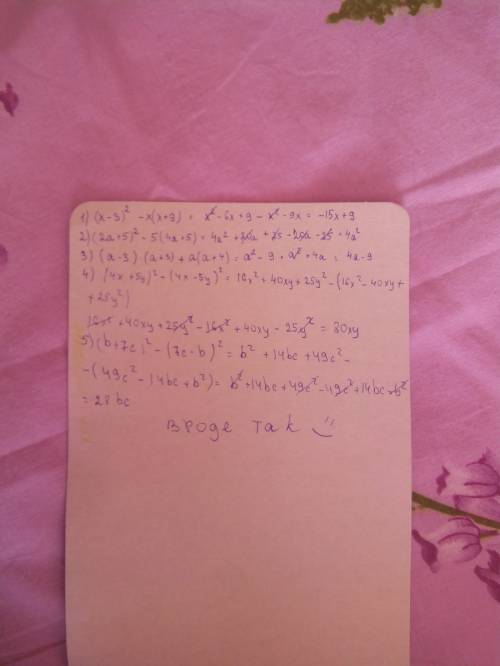 1) (x-3)² - x(x+9) = x² - 6x + 9 - x² - 9x = -15x + 9
2) (2a+5)² - 5(4a+5) = 4a² + 20a + 25 - 20a - 25 = 4a²
3) (a-3) (a+3) + a(a+4) = a² - 9 + a² + 4a = 4a - 9
4) (4x+5y)² - (4x-5y)² = 16x² + 40xy + 25y² - (16x² - 40xy +
+ 25y²)
16x² + 40xy + 25y² - 16x² + 40xy - 25y² = 80xy
5) (b+7c)² - (7c-b)² = b² + 14bc + 49c² -
- (49c² - 14bc + b²) = b² + 14bc + 49c² - 49c² + 14bc - b²
= 28bc
вроде так